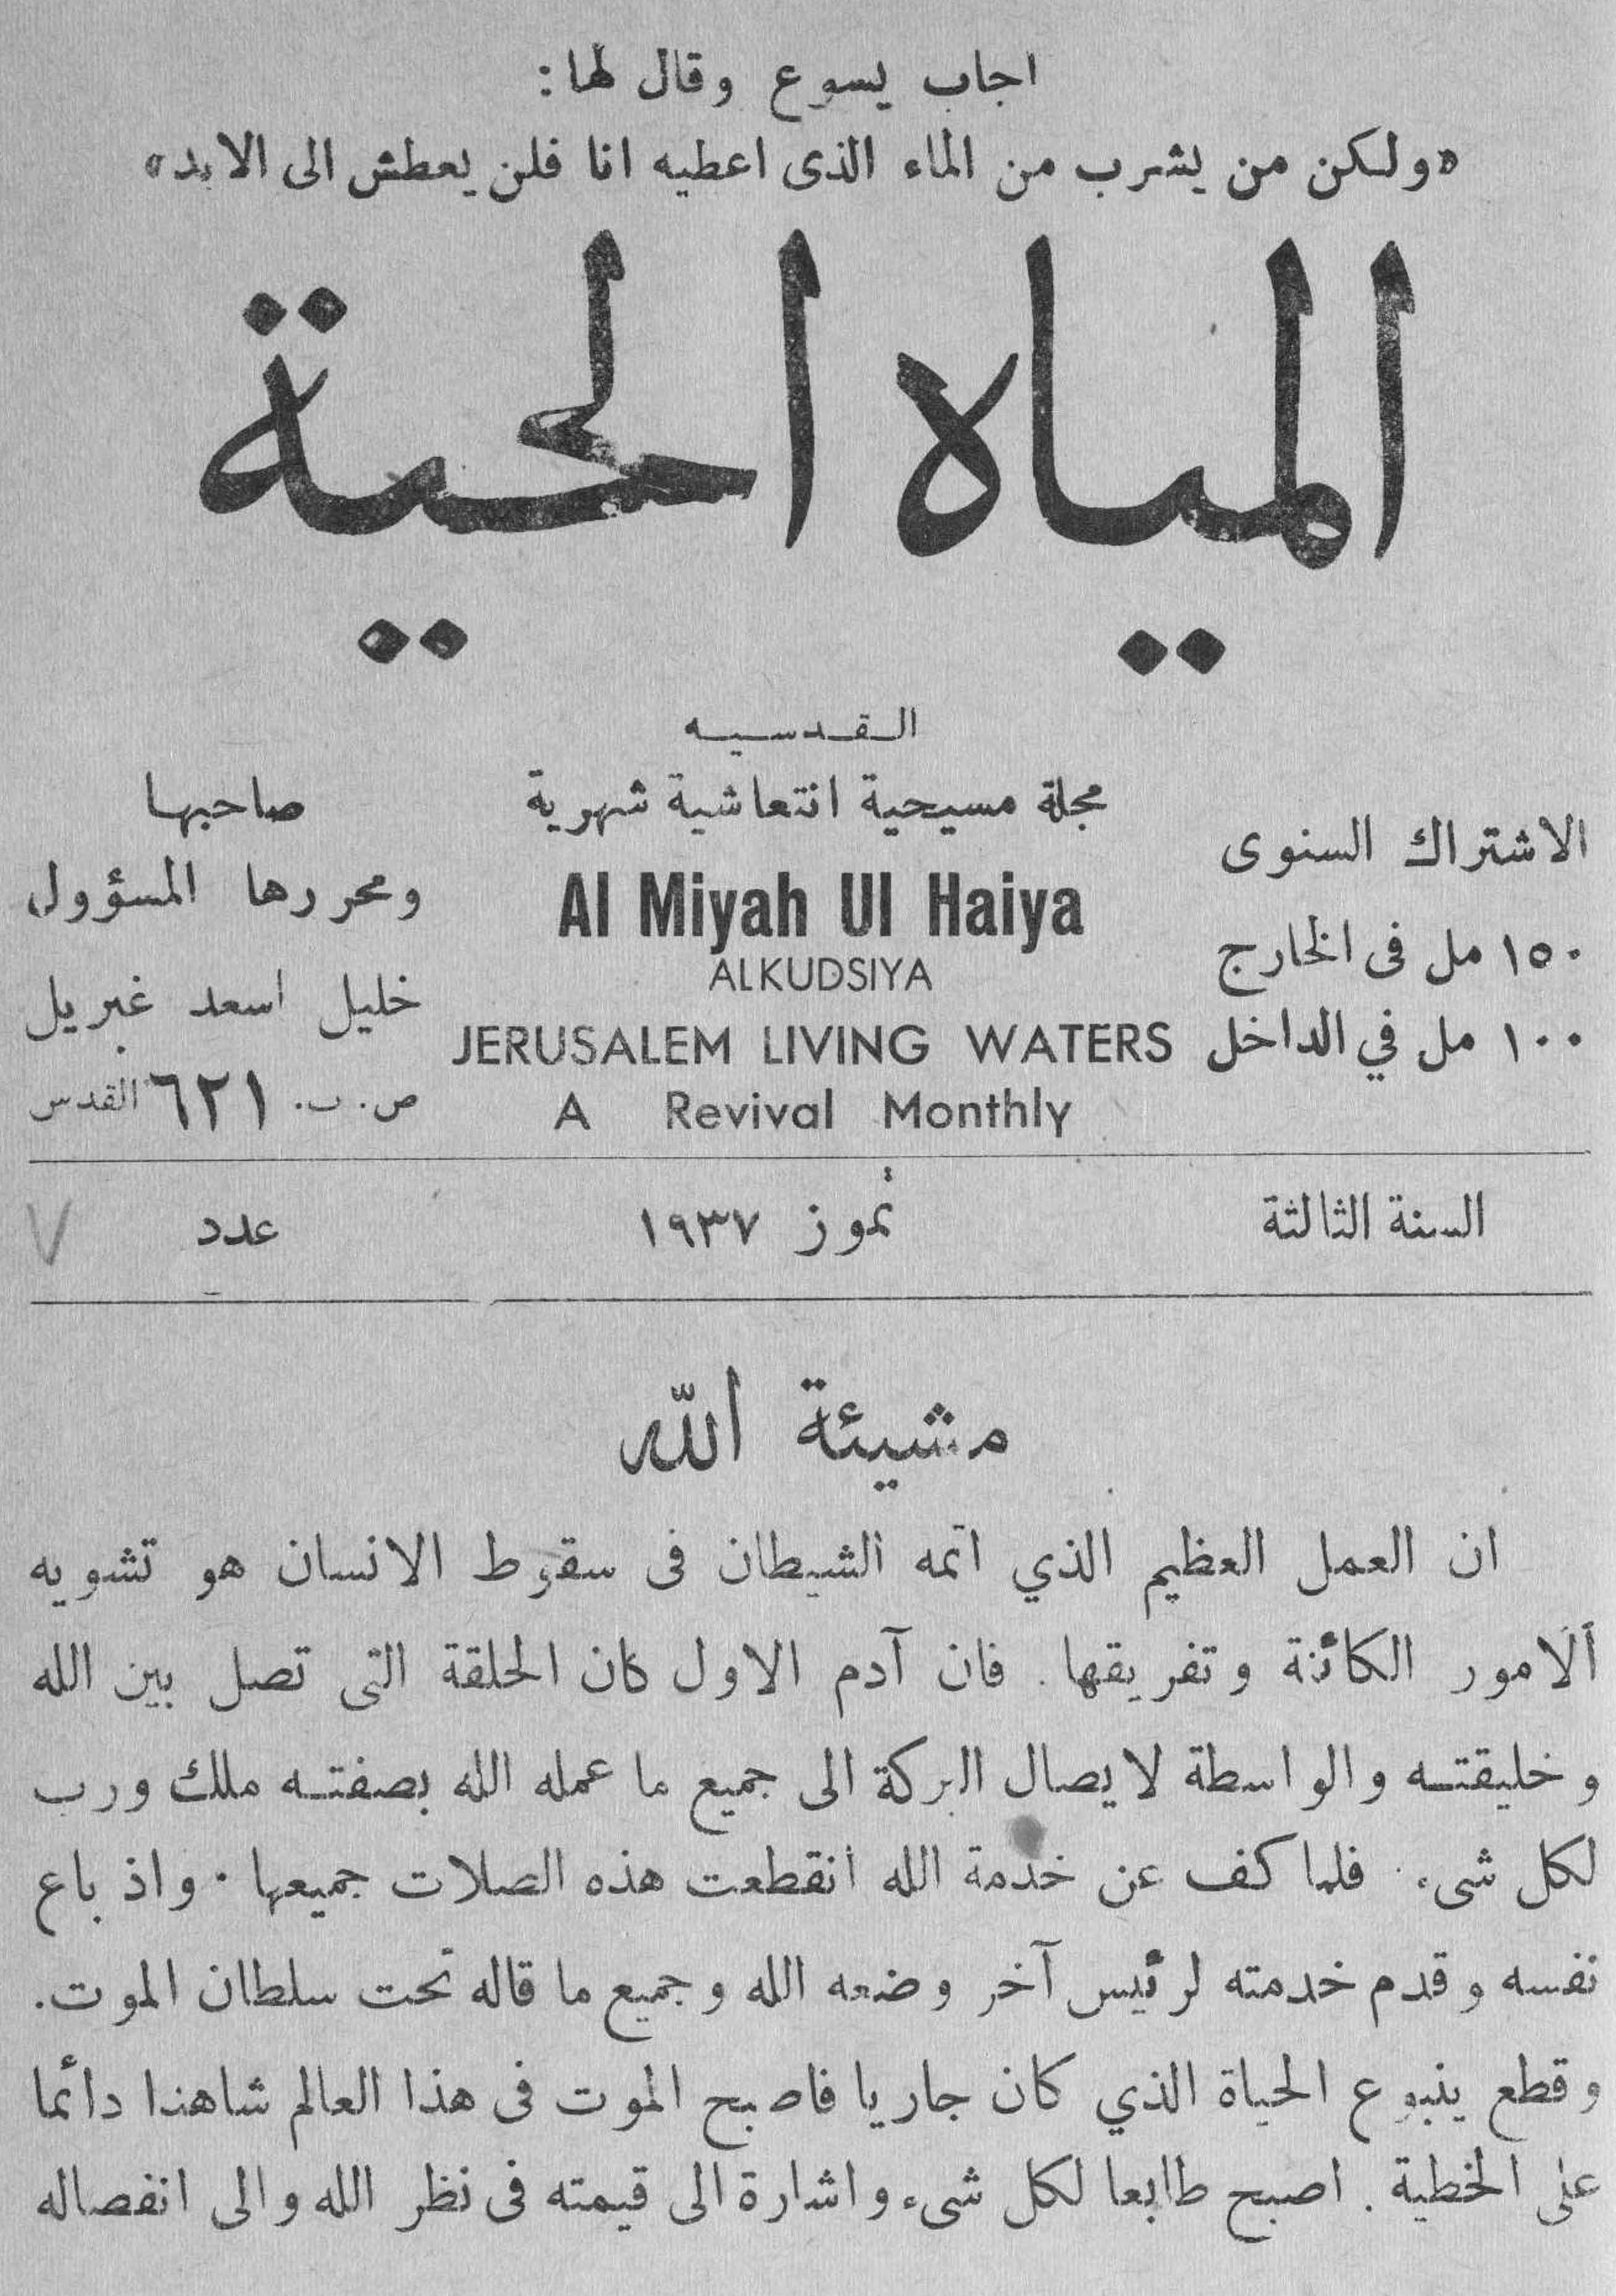 اجاب يسوع وقال لها:
«ولكن من يشرب من الماء الذى اعطيه انا فلن يعطش الى الابد»
المياه الحية
القدسيه
مجلة مسيحية انتعاشية شهرية
Al Miyah Ul Haiya
ALKUDSIYA
JERUSALEM LIVING WATERS
A Revival Monthly
الاشتراك السنوى
١٥٠ مل فى الخارج
١٠٠ مل في الداخل
صاحبها
ومحررها المسؤول
خليل اسعد غبريل
ص. ب. ٦٢١ القدس
السنة الثالثة تموز ١٩٣٧ عدد ٧
مشيئة الله
ان العمل العظيم الذي اتمه الشيطان فى سقوط الانسان هو تشويه
الامور الكائنة وتفريقها. فان آدم الاول كان الحلقة التى تصل بين الله
وخليقته والواسطة لايصال البركة الى جميع ما عمله الله بصفته ملك ورب
لكل شىء. فلما كف عن خدمة الله انقطعت هذه الصلات جميعها. واذ باع
نفسه وقدم خدمته لرئيس آخر وضعه الله وجميع ما قاله تحت سلطان الموت.
وقطع ينبوع الحياة الذي كان جاريا فاصبح الموت فى هذا العالم شاهدا دائما
على الخطية. اصبح طابعا لكل شىء واشارة الى قيمته فى نظر الله والى انفصاله